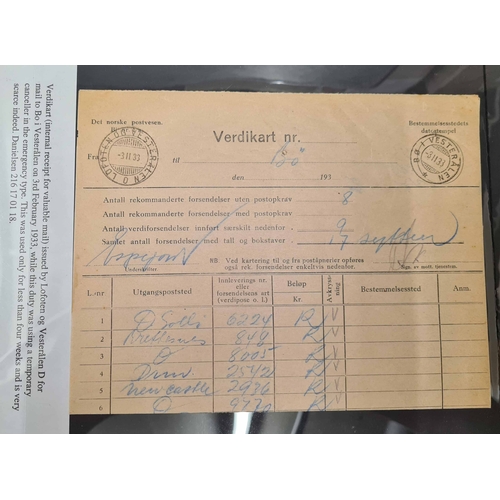 Verdikart (internal receipt for valuable mail) issued by Lofoten og Vesterålen D for
mail to Bo i Vesterålen on 3rd February 1933, while this duty was using a temporary
canceller in the emergency type. This was used only for less than four weeks and is very
scarce indeed. Danielsen 216 17 01 18.
Det norske postvesen.
Verdikart nr.
Bestemmelsesstedets
datostempel
LOFOTEN OG VESTERÅLEN D
-3 II 33
BØ I VESTERÅLEN
-3 II 33
Fra
til
Bö
den
193
Antall rekommanderte forsendelser uten postopkrav
8
Antall rekommanderte forsendelser med postopkrav
Antall verdiforsendelser innført særskilt nedenfor
9
Samlet antall forsendelser med tall og bokstaver
17 sytten
Underskrifter
NB Ved kartering til og fra poståpnerier opføres
også rek. forsendelser enkeltvis nedenfor.
Sign. av mott. tjenestem.
L.-nr
Utgangspoststed
Innleverings nr.
eller
forsendelsens art
(verdipose o. l.)
Beløp
Kr.
Avkrysning
Bestemmelsessted
Anm.
1
6224
R
V
2
848
R
V
3
D
8005
R
V
4
2542
R
V
5
Newcastle
2936
R
V
6
D
977
R